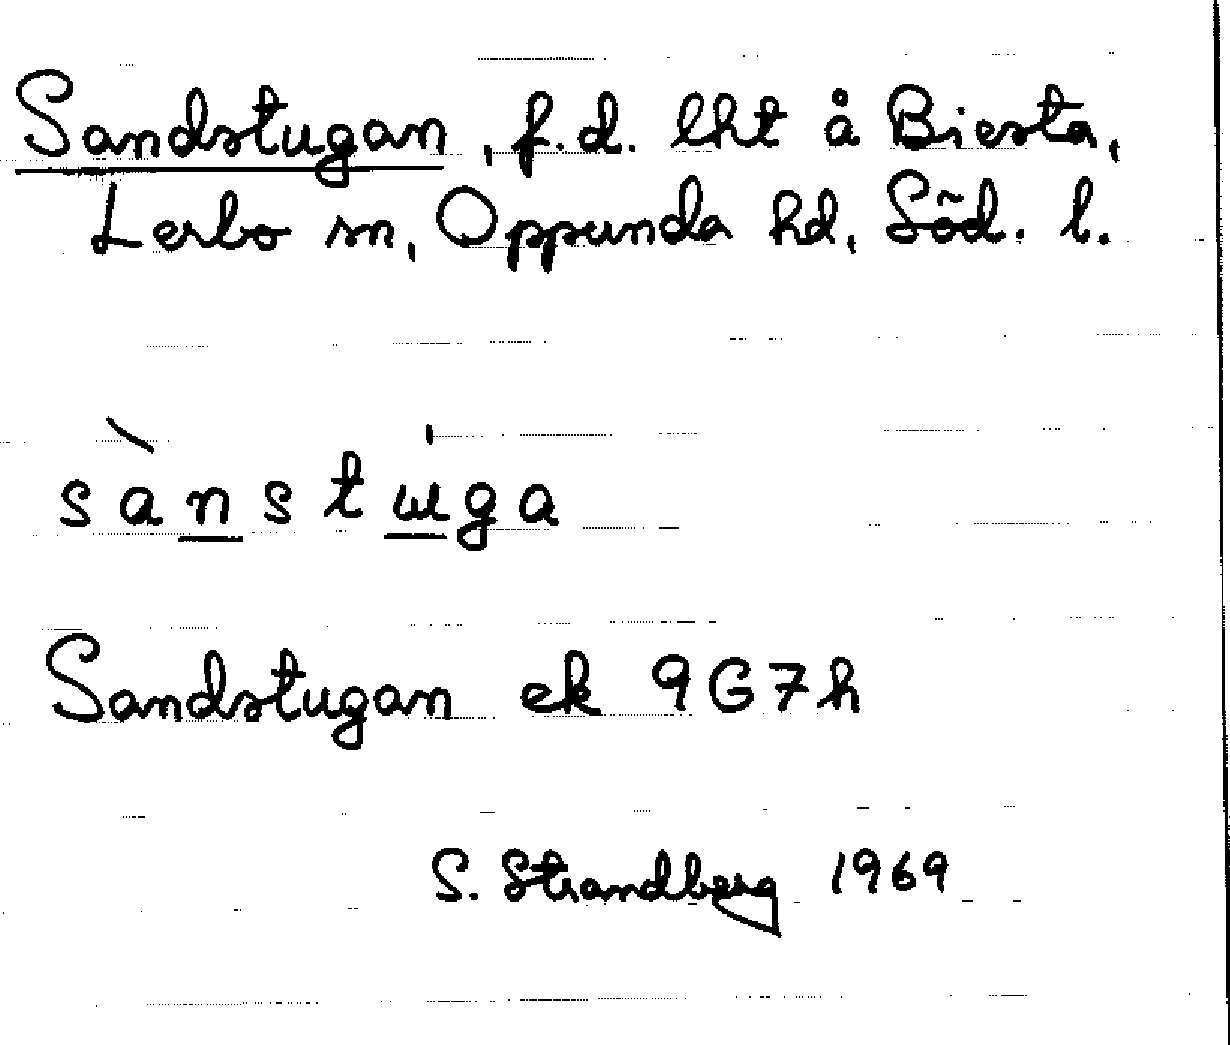 Sandstugan, f.d. lht å Biesta,
Lerbo sn, Oppunda hd, Söd. l.
sànstɯ̍ga
Sandstugan ek 9G7h
S. Strandberg 1969